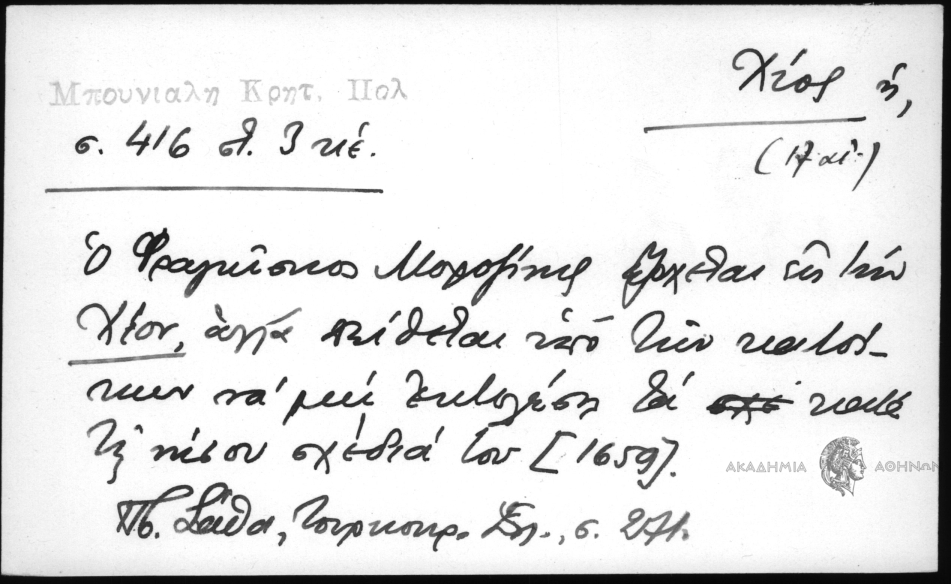 Μπουνιαλη Κρητ. Πολ
Χίος ἡ,
σ. 416 στ. 3 κέ.
(17 αἰ.)
Ὁ Φραγκῖσκος Μοροζίνης ἔρχεται εἰς τὴν
Χίον, ἀλλά πείθεται ὑπό τῶν κατοί-
κων νά μή ἐκτελέσῃ τά κατά
τῆς νήσου σχέδιά του [1659].
Πβ. Σάθα, Τουρκοκρ. Ἑλ., σ. 271.
ΑΚΑΔΗΜΙΑ ΑΘΗΝΩΝ